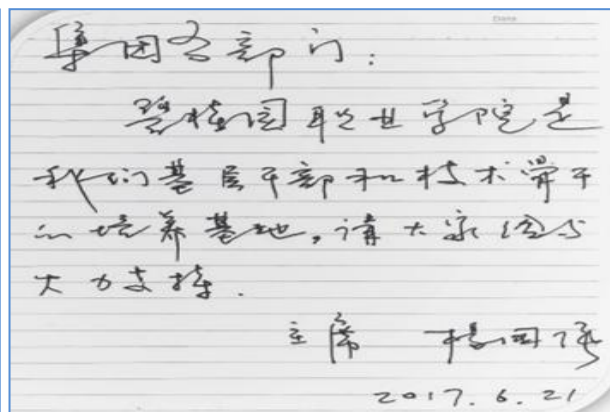 集团各部门：
碧桂园职业学院是
我们基层干部和技术骨干
的培养基地，请大家给与
大力支持.
主席 杨国强
2017.6.21